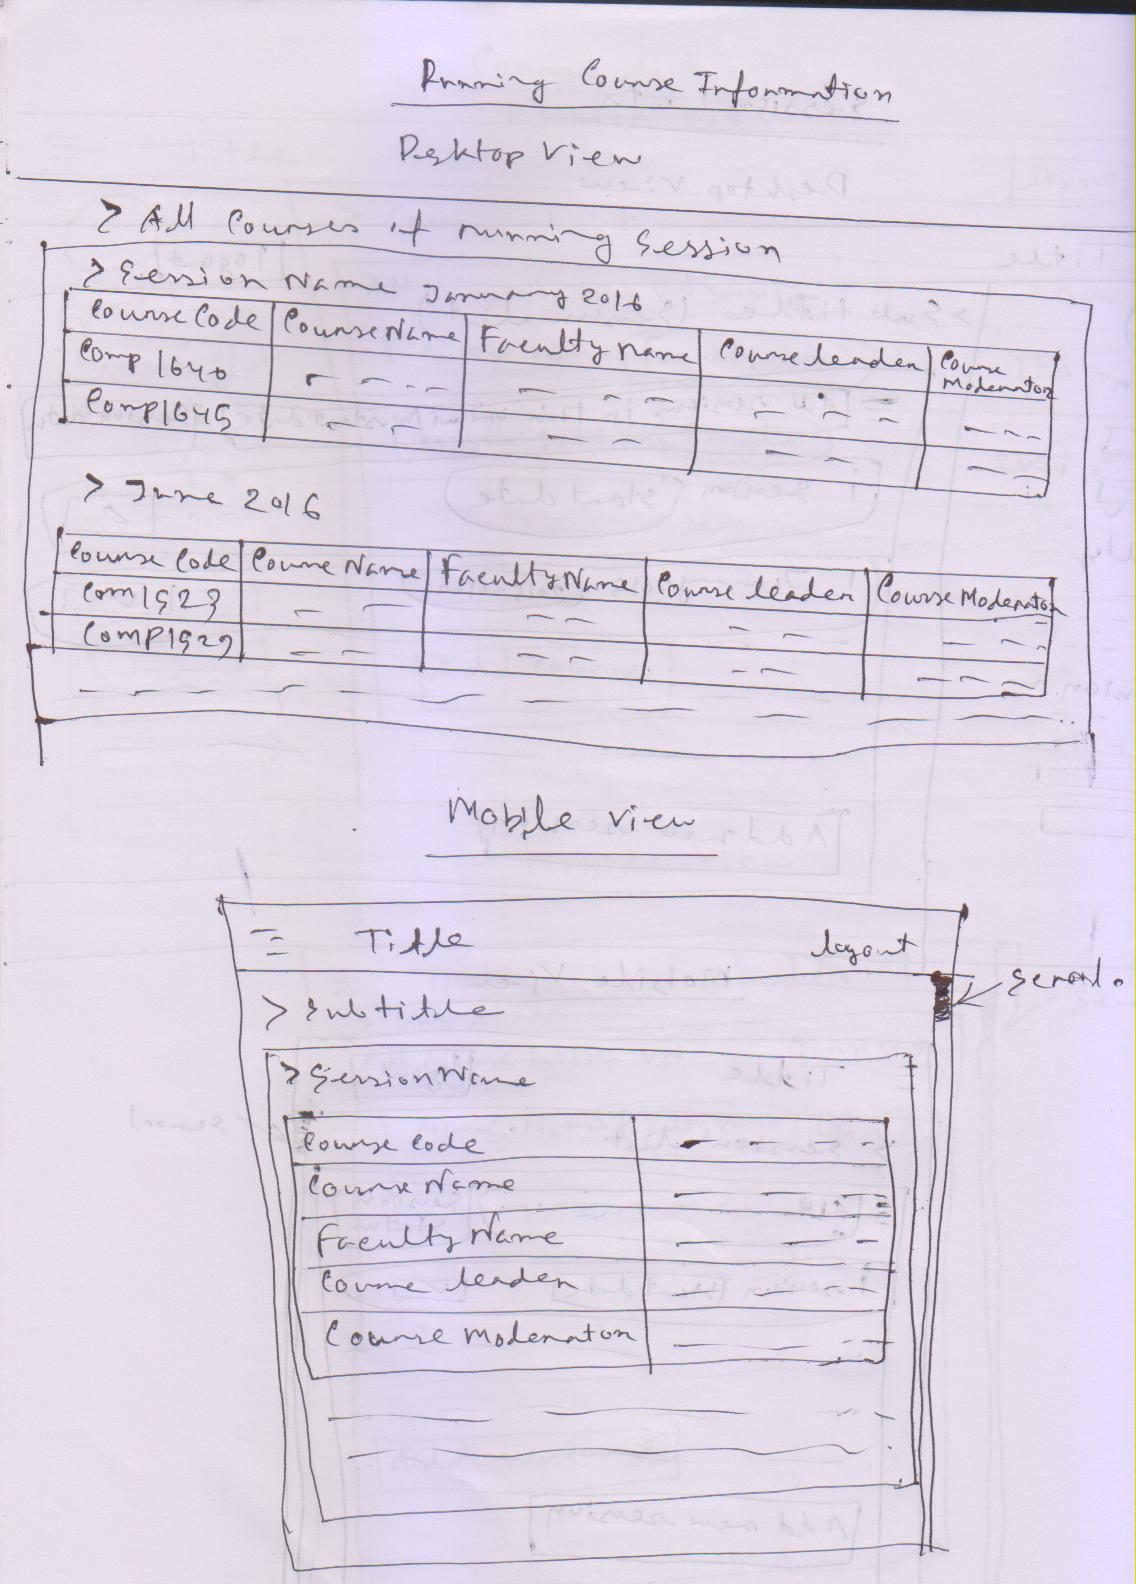 Running Course Information
Desktop View
> All Courses of running Session
> Session Name January 2016
Course Code Course Name Faculty name Course leader Course Moderator
Comp 1640
Comp1645
> June 2016
Course Code Course Name Faculty Name Course leader Course Moderator
Com1923
COMP1929
Mobile View
Title layout
> Subtitle scroll.
> Session Name
Course Code
Course Name
Faculty Name
Course leader
Course Moderator
Add new session